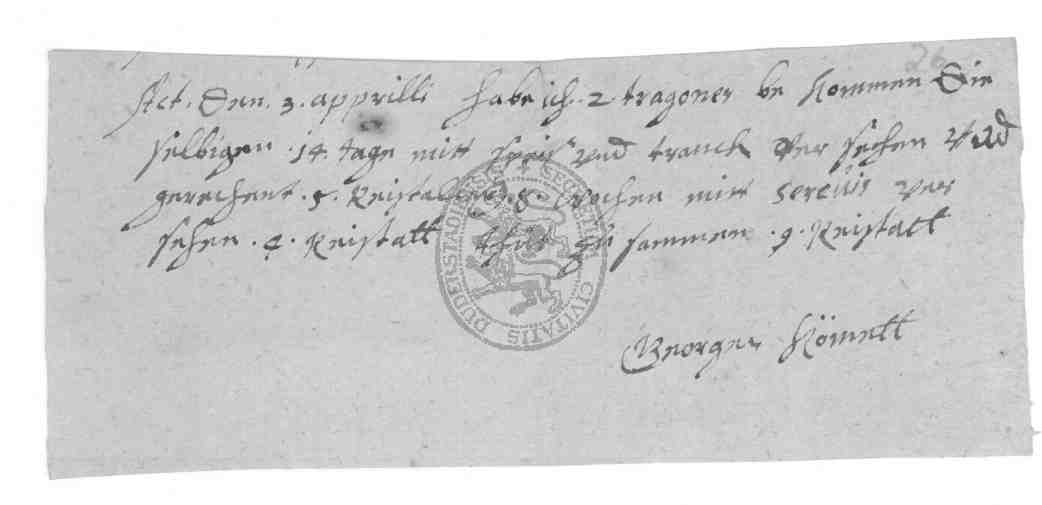 26
Act. Den. 3. apprilli habe ich. 2. tragoner be kommen Die
selbigen. 14. tage mitt speis vnd tranck ver sehen Vnd
gerechent. 5. Reistaller. 8. wochen mitt serviis ver
sehen. 4. Reistall thut zu sammen. 9. Reistall
Georgen
SECRETVM CIVITATIS DUDERSTADIENSIS